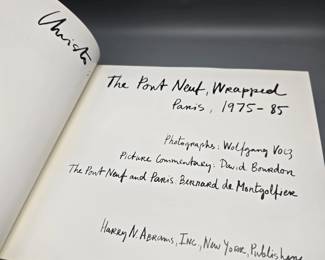 Christo
The Pont Neuf, Wrapped
Paris, 1975-85
Photographs: Wolfgang Volz
Picture Commentary: David Bourdon
The Pont Neuf and Paris: Bernard de Montgolfier
Harry N. Abrams, Inc., New York, Publishers